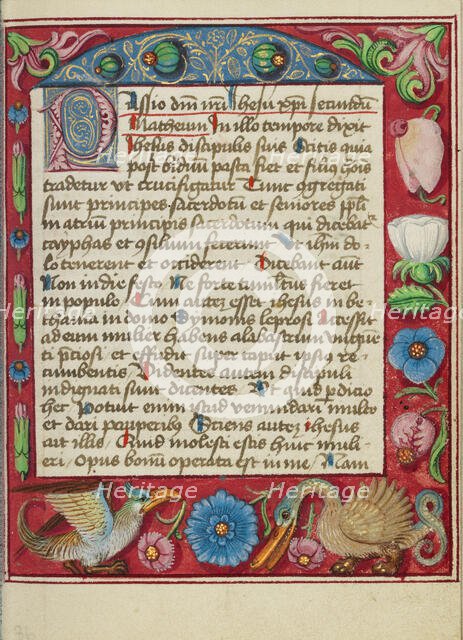 Passio dm̄ nr̄i Jhesu xp̄i secundū
Matheum In illo tempore dixit
Jhesus discipulis suis Scitis quia
post biduum pasca fiet et filius hoīs
tradetur vt crucifigatur Tunc ɔgregati
sunt principes sacerdotum et seniores ppl̄i
in atrium principis sacerdotum qui dicebat̄
cayphas et ɔsilium fecerunt vt ihm̄ do-
lo tenerent et occiderent Dicebant aūt
Non in die festo Ne forte tumultus fieret
in populo Cum autez esset ihesus in be
thania in domo Symonis leprosi Accessit
ad eum mulier habens alabastrum vnguē
ti p̄ciosi et effudit super caput ipsius re
cumbentis Videntes autem discipuli
indignati sunt dicentes Vt quid p̄dicio
hec Potuit enim istud venundari multo
et dari pauperibus Sciens autez ihesus
ait illis Quid molesti estis huic muli-
eri Opus bonū operata est in me Nam
Heritage
Heritage
Heritage
Heritage
Heritage
Heritage
36